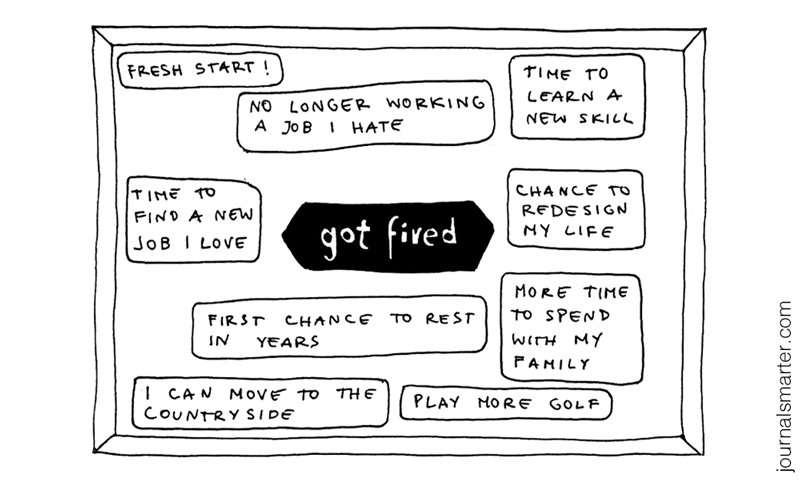 FRESH START!
NO LONGER WORKING
A JOB I HATE
TIME TO
LEARN A
NEW SKILL
TIME TO
FIND A NEW
JOB I LOVE
got fired
CHANCE TO
REDESIGN
MY LIFE
FIRST CHANCE TO REST
IN YEARS
MORE TIME
TO SPEND
WITH MY
FAMILY
I CAN MOVE TO THE
COUNTRYSIDE
PLAY MORE GOLF
journalsmarter.com